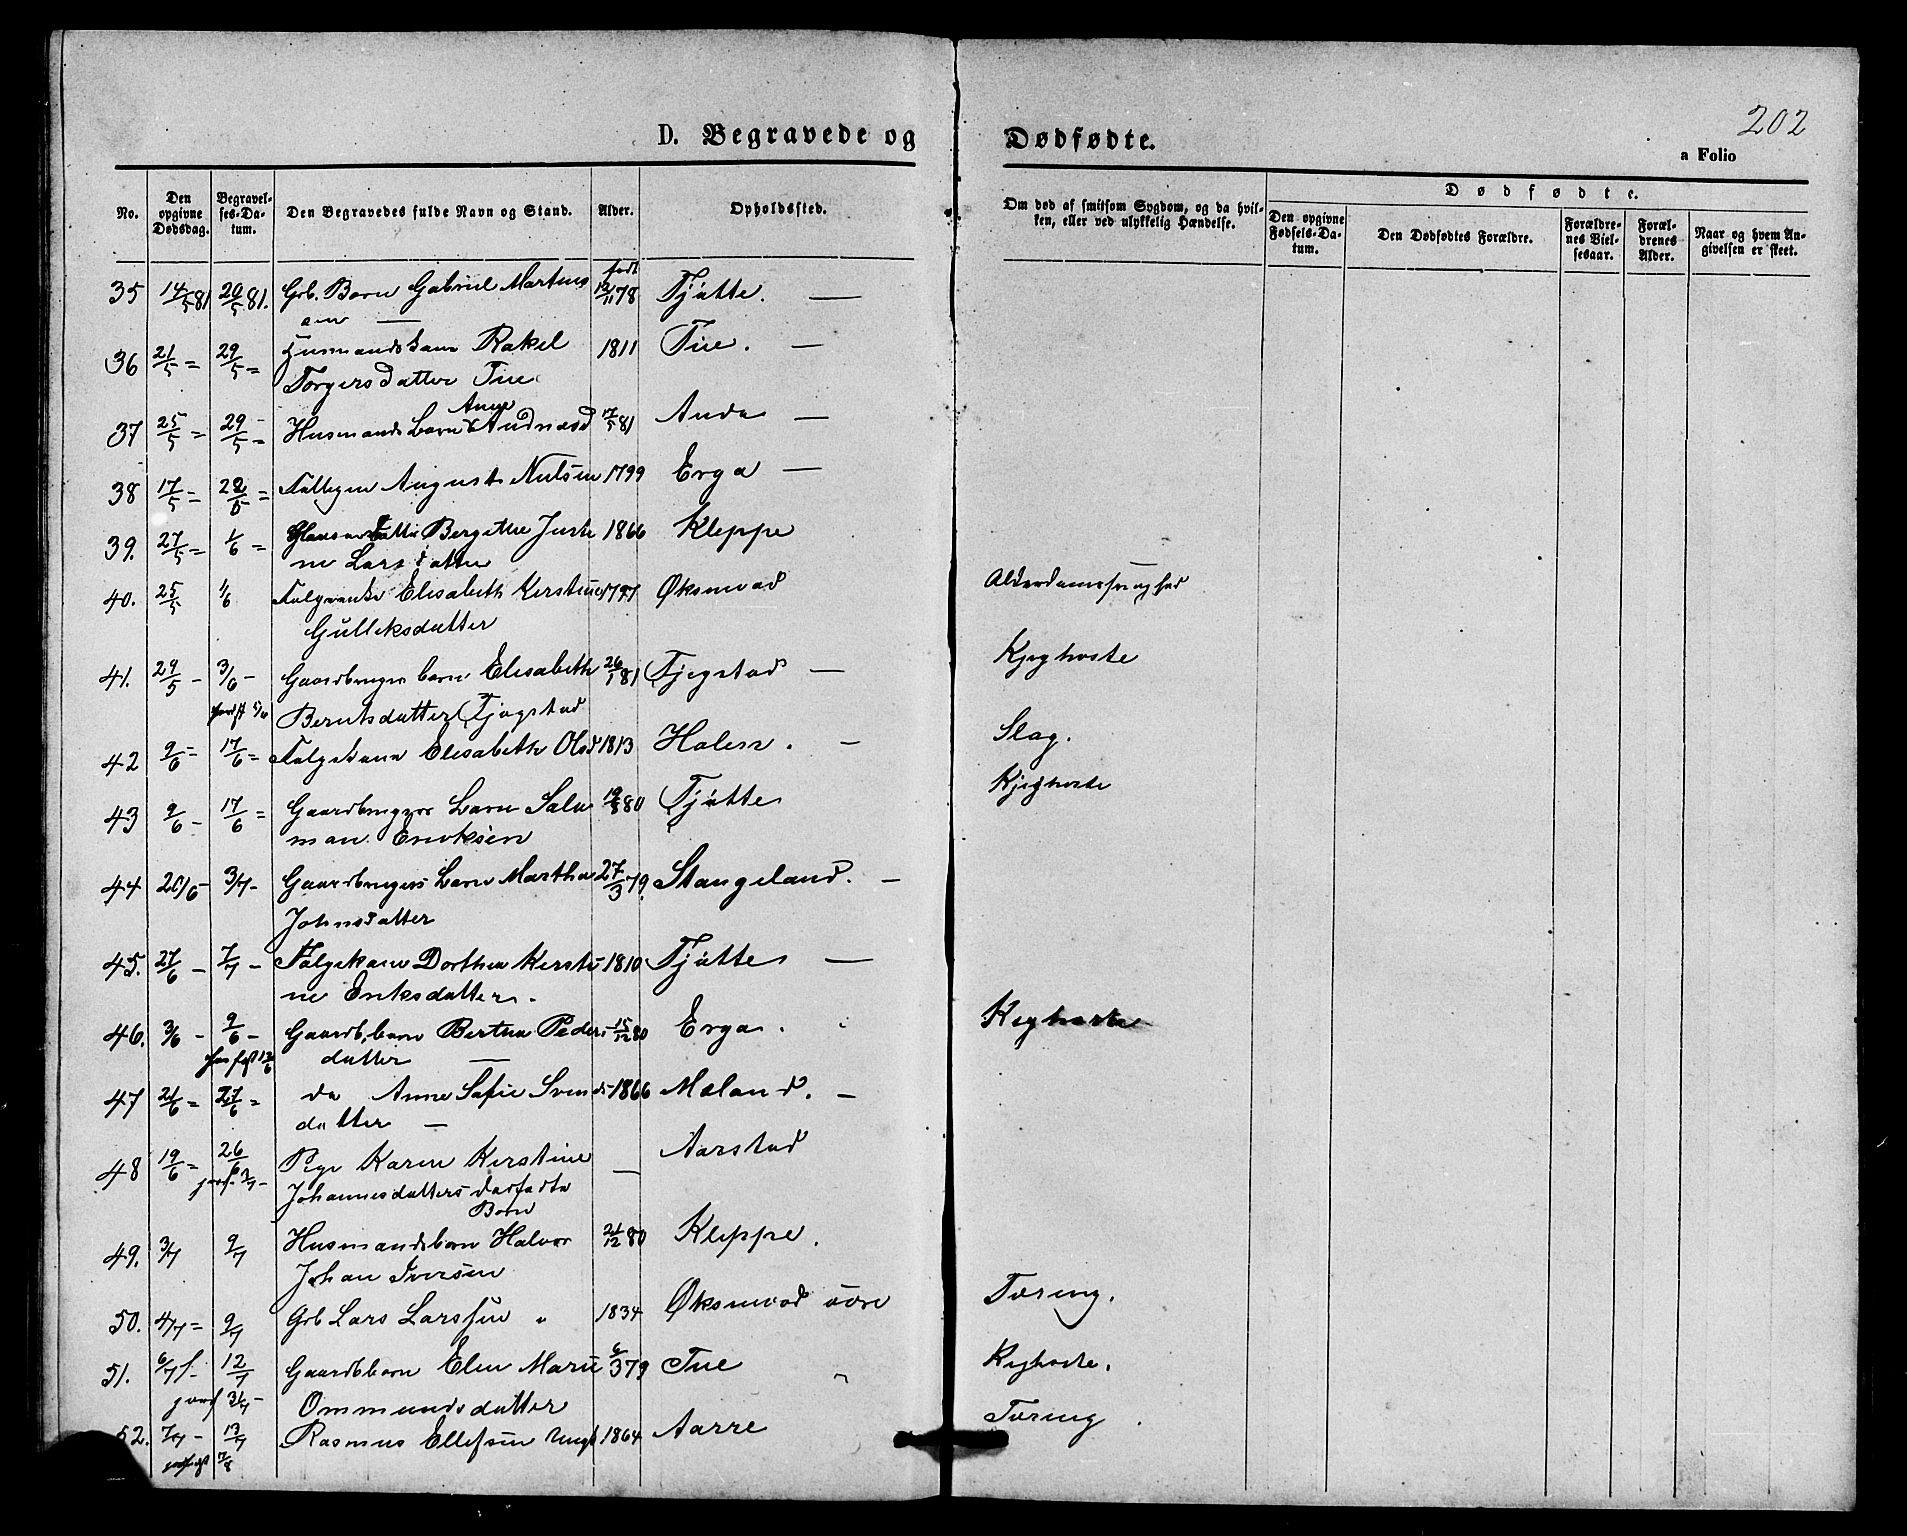 202
D. Begravede og Dødfødte.
a Folio
No.
Den opgivne Dødsdag.
Begravelses-Datum.
Den Begravedes fulde Navn og Stand.
Alder.
Opholdssted.
Om død af smitsom Sygdom, og da hvilken, eller ved ulykkelig Hændelse.
Dødfødte.
Den opgivne Fødsels-Datum.
Den Dødfødtes Forældre.
Forældrenes Vielsesaar.
Forældrenes Alder.
Naar og hvem Angivelsen er skeet.
35 14/5 81 20/5 81. Grb. Barn Gabriel Martins født 12/11 78 Tjøtte. —
36 21/5 = 29/5 = Husmandskone Rakel 1811 Tue. —
Torgersdatter Tue
37 25/5 = 29/5 = Husmands barn Anne Audnasd 17/5 81 Anda —
38 17/5 = 22/5 = August Nielsen 1799 Erga —
39. 27/5 = 1/6 = Bergitte Justi 1866 Kleppe
ne Larsdatter
40. 25/5 1/6 Elisabeth Kerstine 1797 Øksnevad Alderdomssvaghed
Gulleksdatter
41. 29/5 - 3/6 - Gaardbruger barn Elisabeth 26/1 81 Tjøgstad — Kighoste
Berntsdatter Tjøgstad
42 9/6 = 17/6 = Folgekone Elisabeth Olsd 1813 Holen. — Slag.
43 9/6 - 17/6 = Gaardbrugers barn Salu 80 Tjøtte Kighoste
man Eriksen
44 20/6 - 3/7 - Gaardbrugers barn Martha 27/3 79. Stangeland. —
Johnsdatter
45. 27/6 - 7/7 - Folgekone Dorthea Kersti 1810 Tjøtte —
ne Eriksdatter.
46. 3/6 - 9/6 - Gaardb. barn Bertha Peders 15/12 80 Erga. Kighoste
datter —
47 21/6 = 27/6 = do Anne Sofie Svends 1866 Mæland. —
datter —
48 19/6 = 26/6 Pige Karen Kerstine — Aarstad
Johannesdatters dødfødte
Barn
49. 3/7 9/7 Husmandsbarn Halvor 21/12 80 Kleppe.
Johan Iversen
50. 4/7 = 9/7 Grb Lars Larssen 1834 Øksnevad øvre Tæring.
51. 6/7 12/7 Gaardbbarn Elen Marie 6/3 79 Tue Kighoste.
Ommundsdatter
52. 7/7 - 13/7 Rasmus Ellefsen Ungk 1864 Aarre Tæring